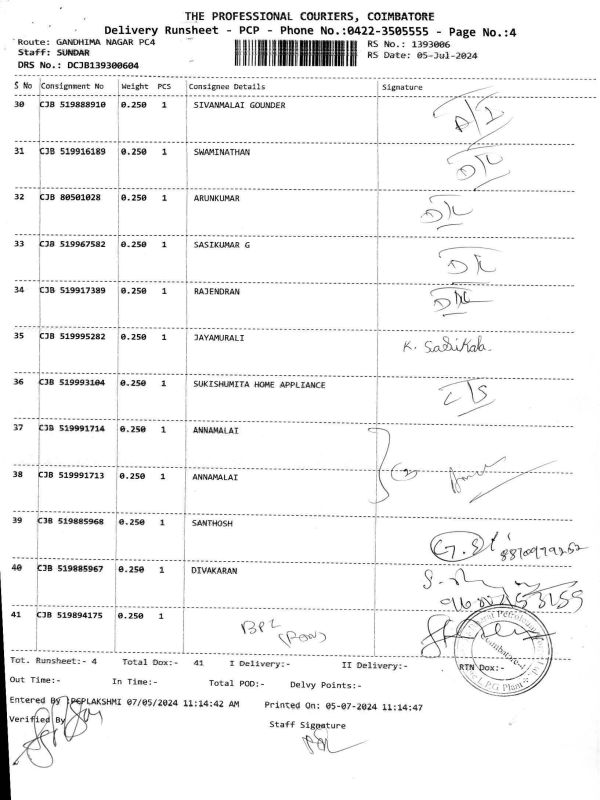 THE PROFESSIONAL COURIERS, COIMBATORE
Delivery Runsheet - PCP - Phone No.:0422-3505555 - Page No.:4
Route: GANDHIMA NAGAR PC4 RS No.: 1393006
Staff: SUNDAR RS Date: 05-Jul-2024
DRS No.: DCJB139300604
S No Consignment No Weight PCS Consignee Details Signature
30 CJB 519888910 0.250 1 SIVANMALAI GOUNDER
31 CJB 519916189 0.250 1 SWAMINATHAN
32 CJB 80501028 0.250 1 ARUNKUMAR
33 CJB 519967582 0.250 1 SASIKUMAR G
34 CJB 519917389 0.250 1 RAJENDRAN
35 CJB 519995282 0.250 1 JAYAMURALI K. Sasikala.
36 CJB 519993104 0.250 1 SUKISHUMITA HOME APPLIANCE
37 CJB 519991714 0.250 1 ANNAMALAI
38 CJB 519991713 0.250 1 ANNAMALAI
39 CJB 519885968 0.250 1 SANTHOSH
8870979252
40 CJB 519885967 0.250 1 DIVAKARAN
41 CJB 519894175 0.250 1
Tot. Runsheet:- 4 Total Dox:- 41 I Delivery:- II Delivery:- RTN Dox:-
Out Time:- In Time:- Total POD:- Delvy Points:-
Entered By :PCPLAKSHMI 07/05/2024 11:14:42 AM Printed On: 05-07-2024 11:14:47
Verified By Staff Signature